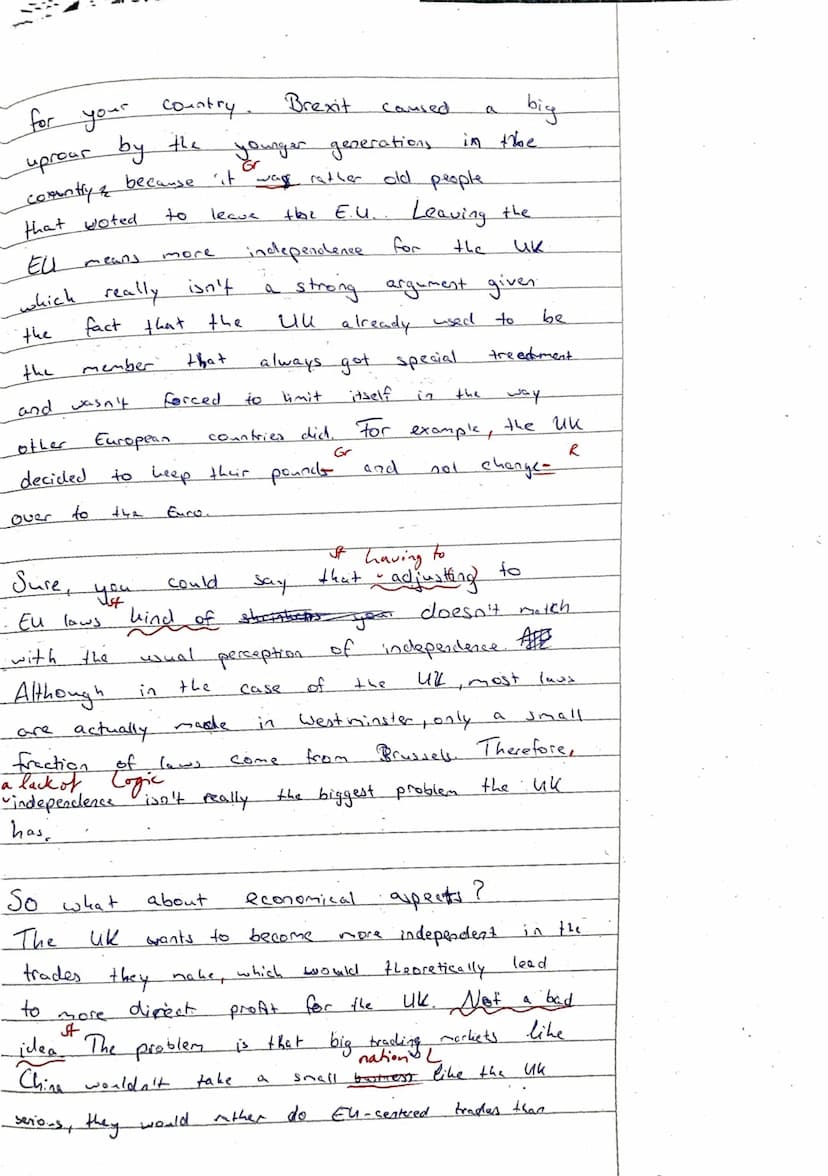 for your country. Brexit caused a big
uproar by the younger generations in the
Gr
country, because it was rather old people
that voted to leave the E.U.. Leaving the
EU means more independence for the UK
which really isn't a strong argument given
the fact that the UK already used to be
the member that always got special treedment
and wasn't forced to limit itself in the way
other European countries did. For example, the UK
Gr R
decided to keep their pounds and not change
over to the Euro.
St having to
Sure, you could say that adjusting to
St
EU laws kind of doesn't match
with the usual perception of independence.
Although in the case of the UK, most laws
are actually made in Westminster, only a small
fraction of laws come from Brussels. Therefore,
a lack of Logic
independence isn't really the biggest problem the UK
has.
So what about economical aspects?
The UK wants to become more independent in the
trades they make, which would theoretically lead
to more direct profit for the UK. Not a bad
St
idea. The problem is that big trading markets like
nation L
China wouldn't take a small business like the UK
serious, they would rather do EU-centered trades than